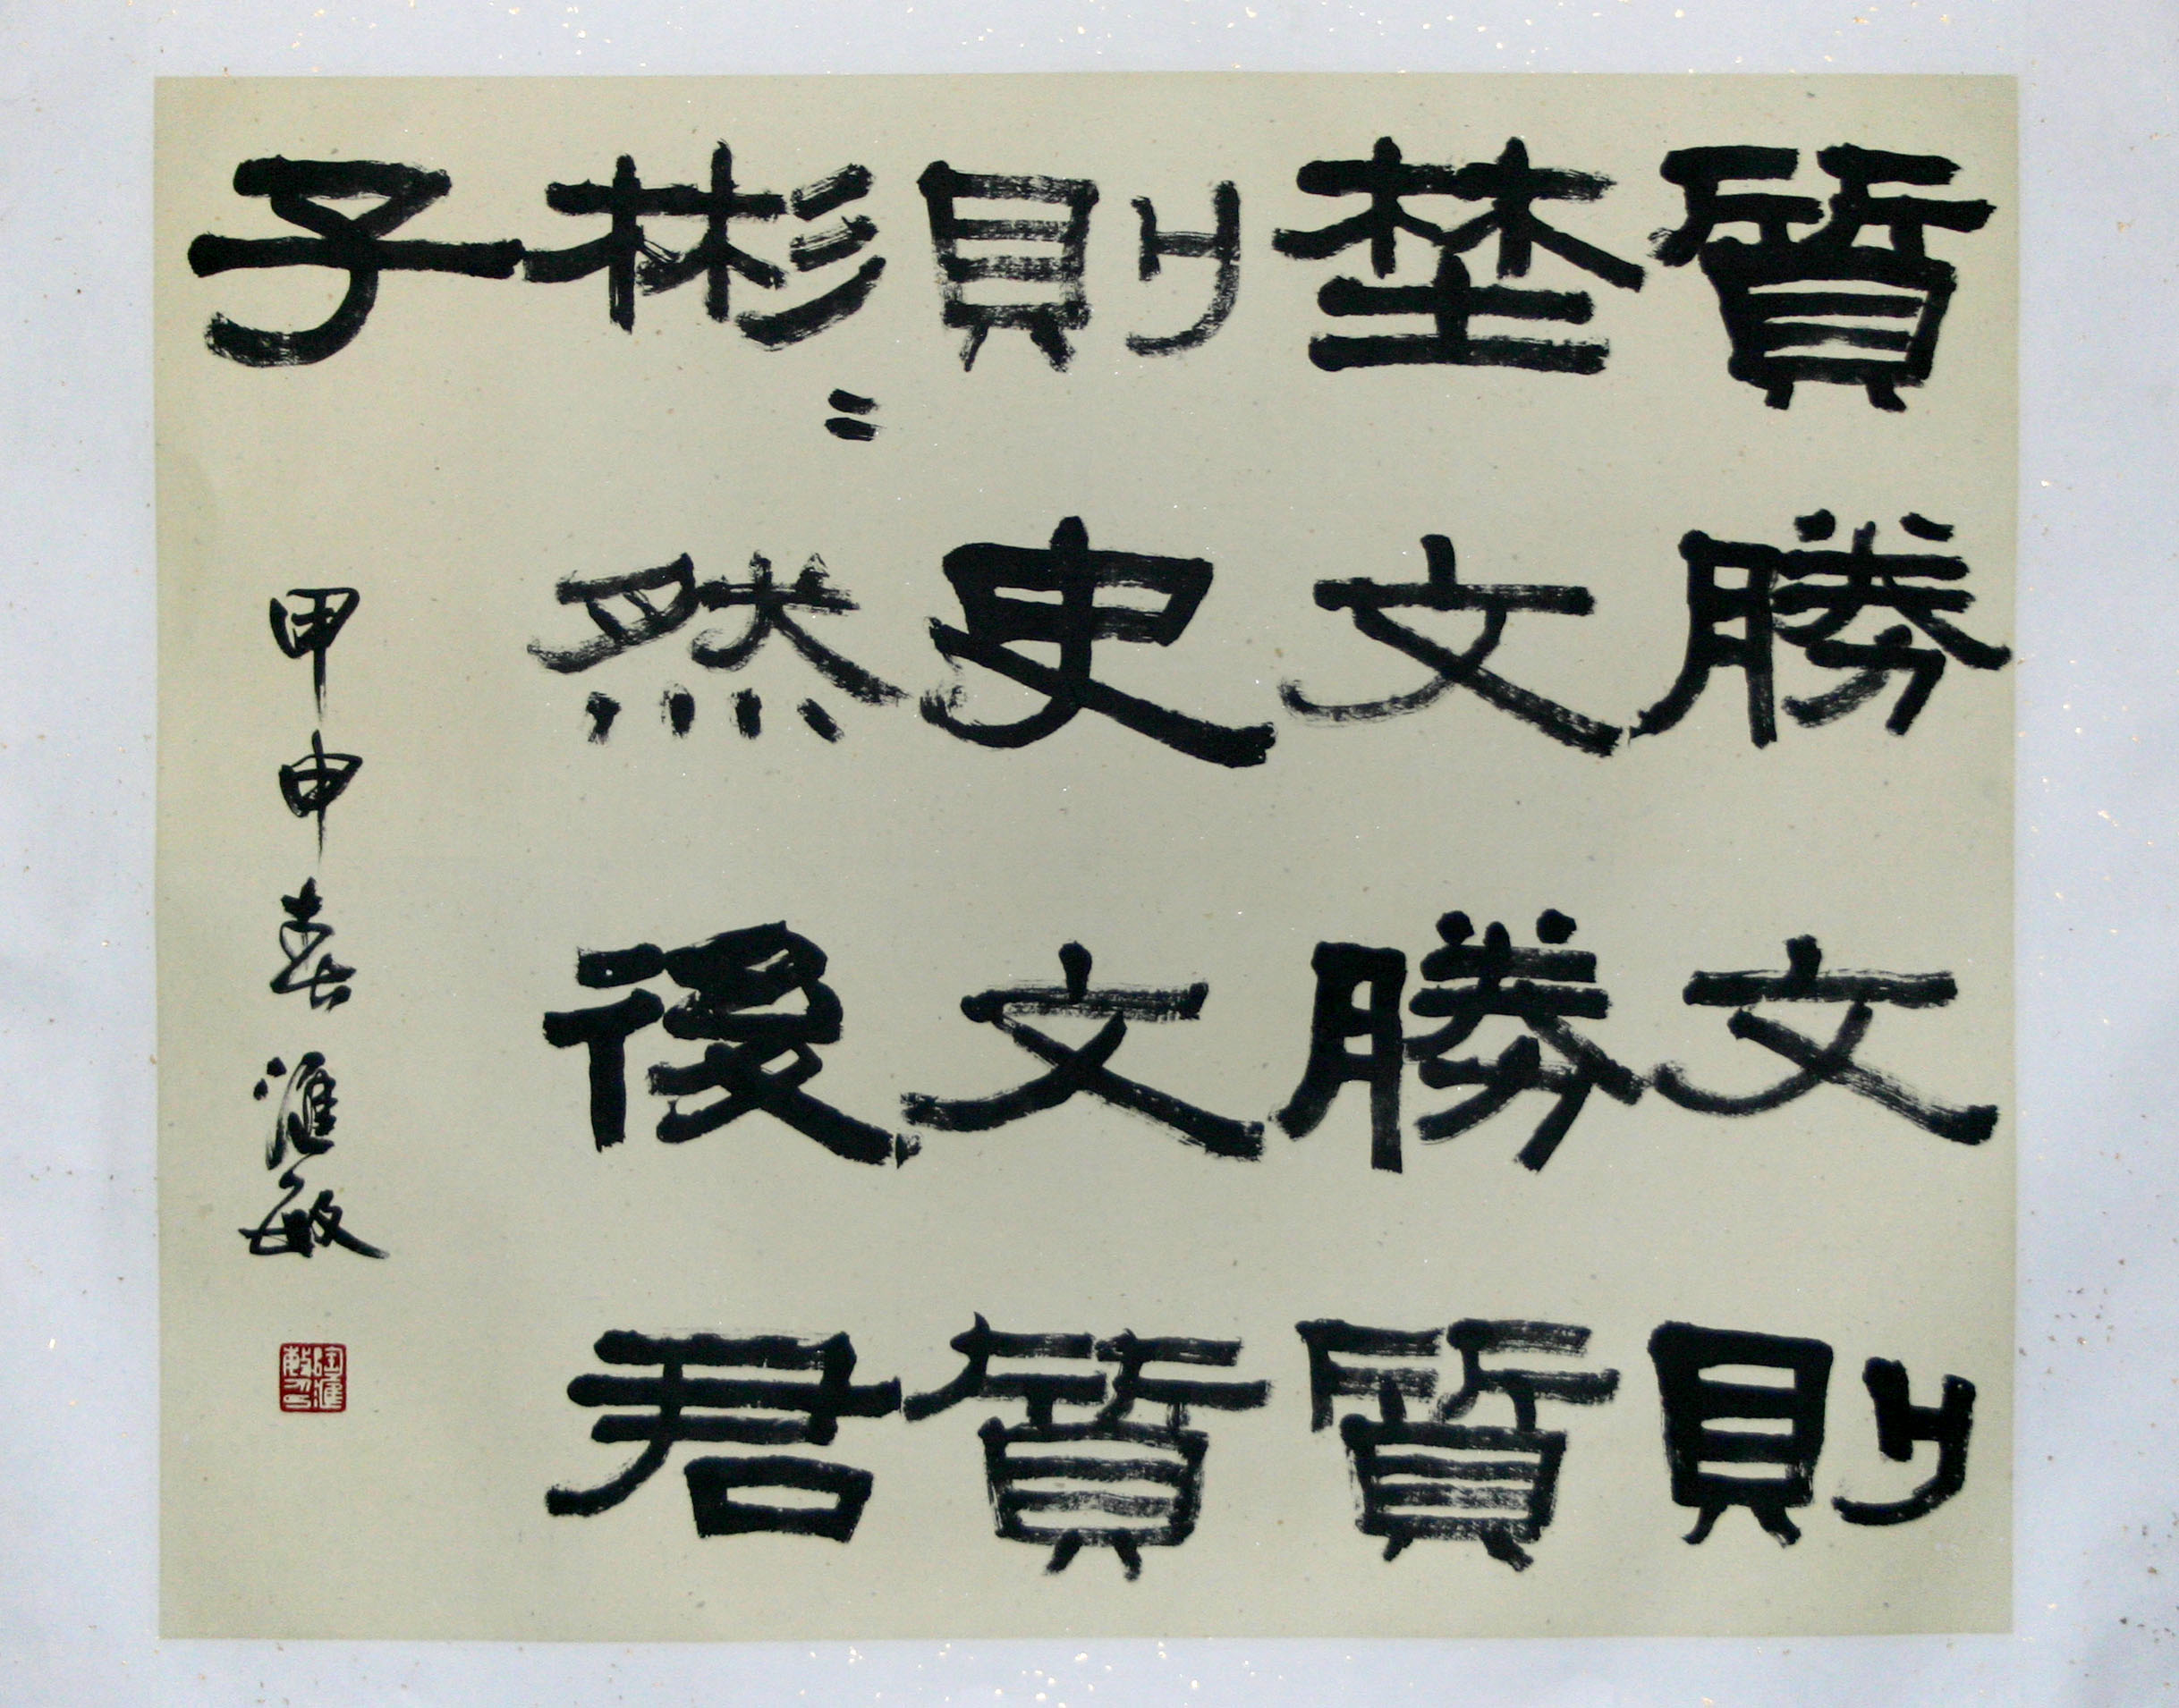 質勝文則
埜文勝質
則史文質
彬〻然後君
子
甲申春滙敏